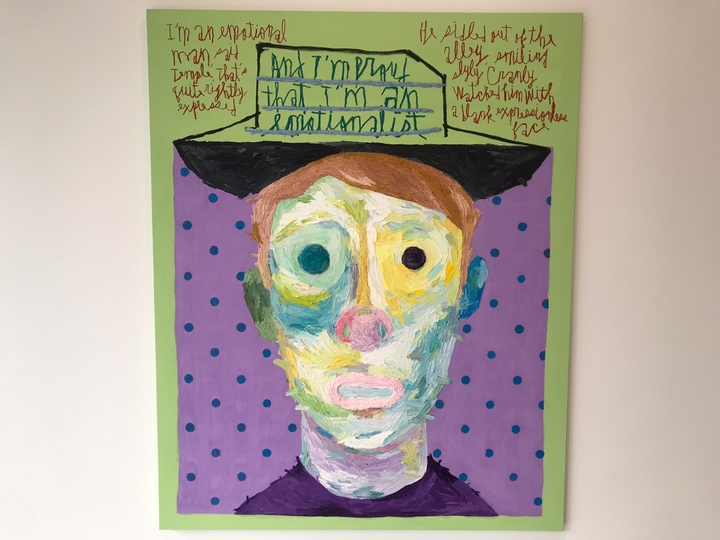 I'm an emotional
man said
Temple that's
quite rightly
expressed
And I'm proud
that I'm an
emotionalist
He sidled out of the
alley smiling
slyly Cranly
watched him with
a blank expressionless
face